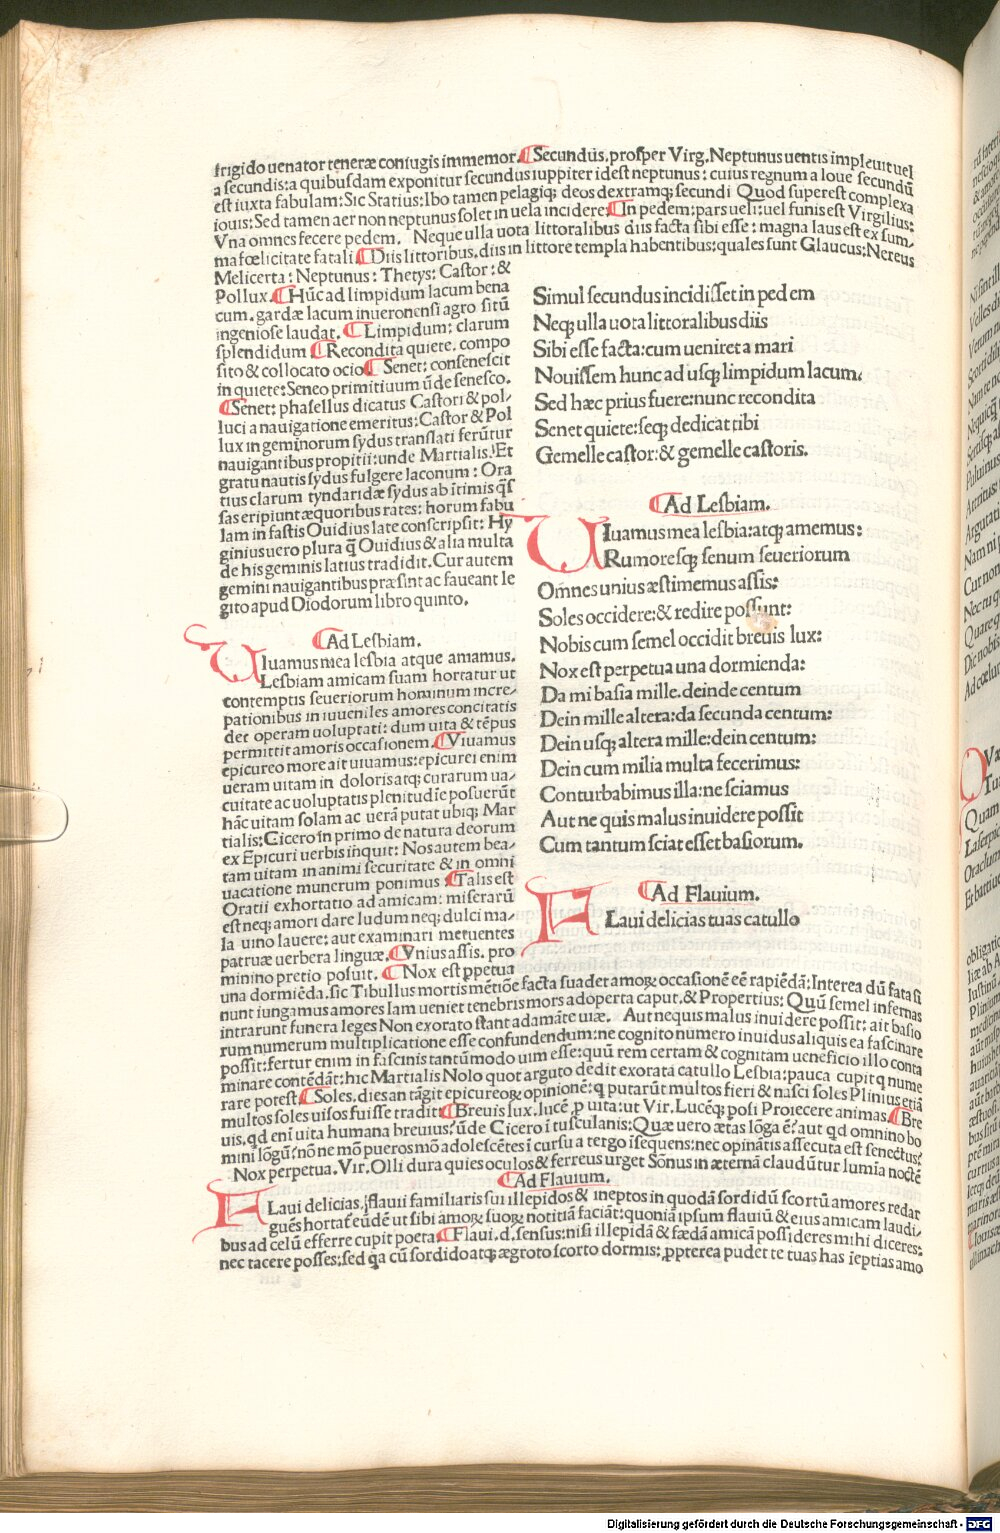 frigido uenator teneræ coniugis immemor. ¶Secundus. prosper Virg. Neptunus uentis impleuit uel
a secundis: a quibusdam exponitur secundus iuppiter idest neptunus: cuius regnum a Ioue secundū
est iuxta fabulam: Sic Statius: Ibo tamen pelagiqꝫ deos dextramqꝫ secundi Quod superest complexa
iouis: Sed tamen aer non neptunus solet in uela incidere: ¶In pedem: pars ueli: uel funis est Virgilius:
Vna omnes fecere pedem. Neque ulla uota littoralibus diis facta sibi esse: magna laus est ex sum/
ma fœlicitate fatali ¶Diis littoribus. diis in littore templa habentibus: quales sunt Glaucus: Nereus
Melicerta: Neptunus: Thetys: Castor: &
Pollux. ¶Hūc ad limpidum lacum bena
cum. gardæ lacum in ueronensi agro sitū
ingeniose laudat. ¶Limpidum: clarum
splendidum ¶Recondita quiete. compo
sito & collocato ocio ¶Senet: consenescit
in quiete: Seneo primitiuum ūde senesco.
¶Senet: phasellus dicatus Castori & pol/
luci a nauigatione emeritus: Castor & Pol
lux in geminorum sydus translati ferūtur
nauigantibus propitii: unde Martialis. Et
gratu nautis sydus fulgere laconum: Ora
tius clarum tyndaridæ sydus ab ītimis q̄s
sas eripiunt æquoribus rates: horum fabu
lam in fastis Ouidius late conscripsit: Hy
ginius uero plura q̄ Ouidius & alia multa
de his geminis latius tradidit. Cur autem
gemini nauigantibus præsint ac faueant le
gito apud Diodorum libro quinto.
Simul secundus incidisset in pedem
Neqꝫ ulla uota littoralibus diis
Sibi esse facta: cum ueniret a mari
Nouissem hunc ad usqꝫ limpidum lacum.
Sed hæc prius fuere: nunc recondita
Senet quiete: seqꝫ dedicat tibi
Gemelle castor: & gemelle castoris.
¶Ad Lesbiam.
VIuamus mea lesbia: atqꝫ amemus:
Rumoresqꝫ senum seueriorum
Om̄nes unius æstimemus assis:
Soles occidere: & redire possunt:
Nobis cum semel occidit breuis lux:
Nox est perpetua una dormienda:
Da mi basia mille. deinde centum
Dein mille altera: da secunda centum:
Dein usqꝫ altera mille: dein centum:
Dein cum milia multa fecerimus:
Conturbabimus illa: ne sciamus
Aut ne quis malus inuidere possit
Cum tantum sciat esset basiorum.
¶Ad Flauium.
FLaui delicias tuas catullo
¶Ad Lesbiam.
VIuamus mea lesbia atque amamus.
Lesbiam amicam suam hortatur ut
contemptus seueriorum hominum incre/
pationibus in iuueniles amores concitatis
det operam uoluptati: dum uita & tēpus
permittit amoris occasionem. ¶Viuamus
epicureo more ait uiuamus: epicurei enim
ueram uitam in doloris atqꝫ curarum ua/
cuitate ac uoluptatis plenitudīe posuerūt
hāc uitam solam ac uerā putat ubiqꝫ Mar
tialis: Cicero in primo de natura deorum
ex Epicuri uerbis īnquit: Nos autem bea/
tam uitam in animi securitate & in omni
uacatione munerum ponimus ¶Talis est
Oratii exhortatio ad amicam: miserarū
est neqꝫ amori dare ludum neqꝫ dulci ma/
la uino lauere: aut examinari metuentes
patruæ uerbera linguæ. ¶Vnius assis. pro
minino pretio posuit. ¶Nox est ppetua
una dormiēda. sic Tibullus mortis mētiōe facta suadet amoꝝ occasionē eē rapiēdā: Interea dū fata si
nunt iungamus amores Iam ueniet tenebris mors adoperta caput. & Propertius: Quū semel infernas
intrarunt funera leges Non exorato stant adamāte uiæ. Aut nequis malus inuidere possit: ait basio
rum numerum multiplicatione esse confundendum: ne cognito numero inuidus aliquis ea fascinare
possit: fertur enim in fascinis tantūmodo uim esse: quū rem certam & cognitam ueneficio illo conta
minare contēdāt: hic Martialis Nolo quot arguto dedit exorata catullo Lesbia: pauca cupit q nume
rare potest. ¶Soles. dies an tāgit epicureoꝝ opinionē: q putarūt multos fieri & nasci soles Plinius etiā
multos soles uisos fuisse tradit: ¶Breuis lux. lucē p uita: ut Vir. Lucēqꝫ posi Proiecere animas. ¶Bre
uis. qd eni uita humana breuius? ūde Cicero ī tusculanis: Quæ uero ætas lōga ē? aut qd omnino ho
mini lōgū? nō ne mō pueros mō adolescētes ī cursu a tergo īsequens: nec opinātis assecuta est senectus?
Nox perpetua. Vir. Olli dura quies oculos & ferreus urget Sōnus in æternā claudūtur lumia noctē
¶Ad Flauium.
FLaui delicias. flauii familiaris sui illepidos & ineptos in quodā sordidū scortū amores redar
guēs hortat̄ eūdē ut sibi amoꝝ suoꝝ notitiā faciāt: quoniā ipsum flauiū & eius amicam laudi/
bus ad celū efferre cupit poeta ¶Flaui. d. sensus: nisi illepidā & fædā amicā possideres mihi diceres:
nec tacere posses: sed qa cū sordido atqꝫ ægroto scorto dormis: ppterea pudet te tuas has ieptias amo
Digitalisierung gefördert durch die Deutsche Forschungsgemeinschaft - DFG